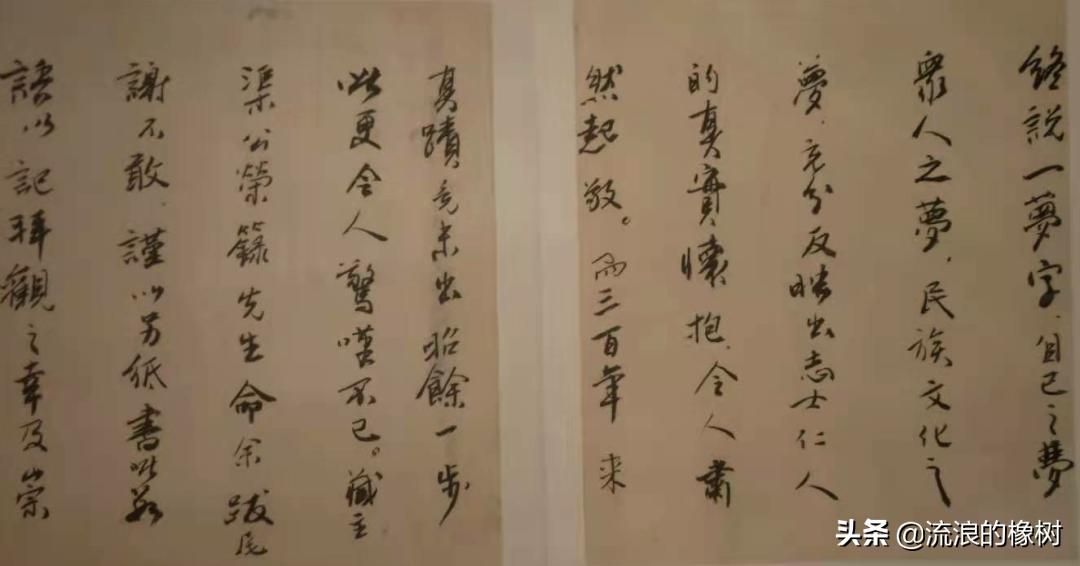 終說一夢字，自己之夢
衆人之夢，民族文化之
夢，充分反映出志士仁人
的真實懷抱，令人肅
然起敬。而三百年来
真蹟竟未出昭餘一步
此更令人驚嘆不已。藏主
渠公榮籙先生命余跋尾
謝不敢，謹以另紙書此數
語以記拜觀之幸及崇
头条 @流浪的橡树